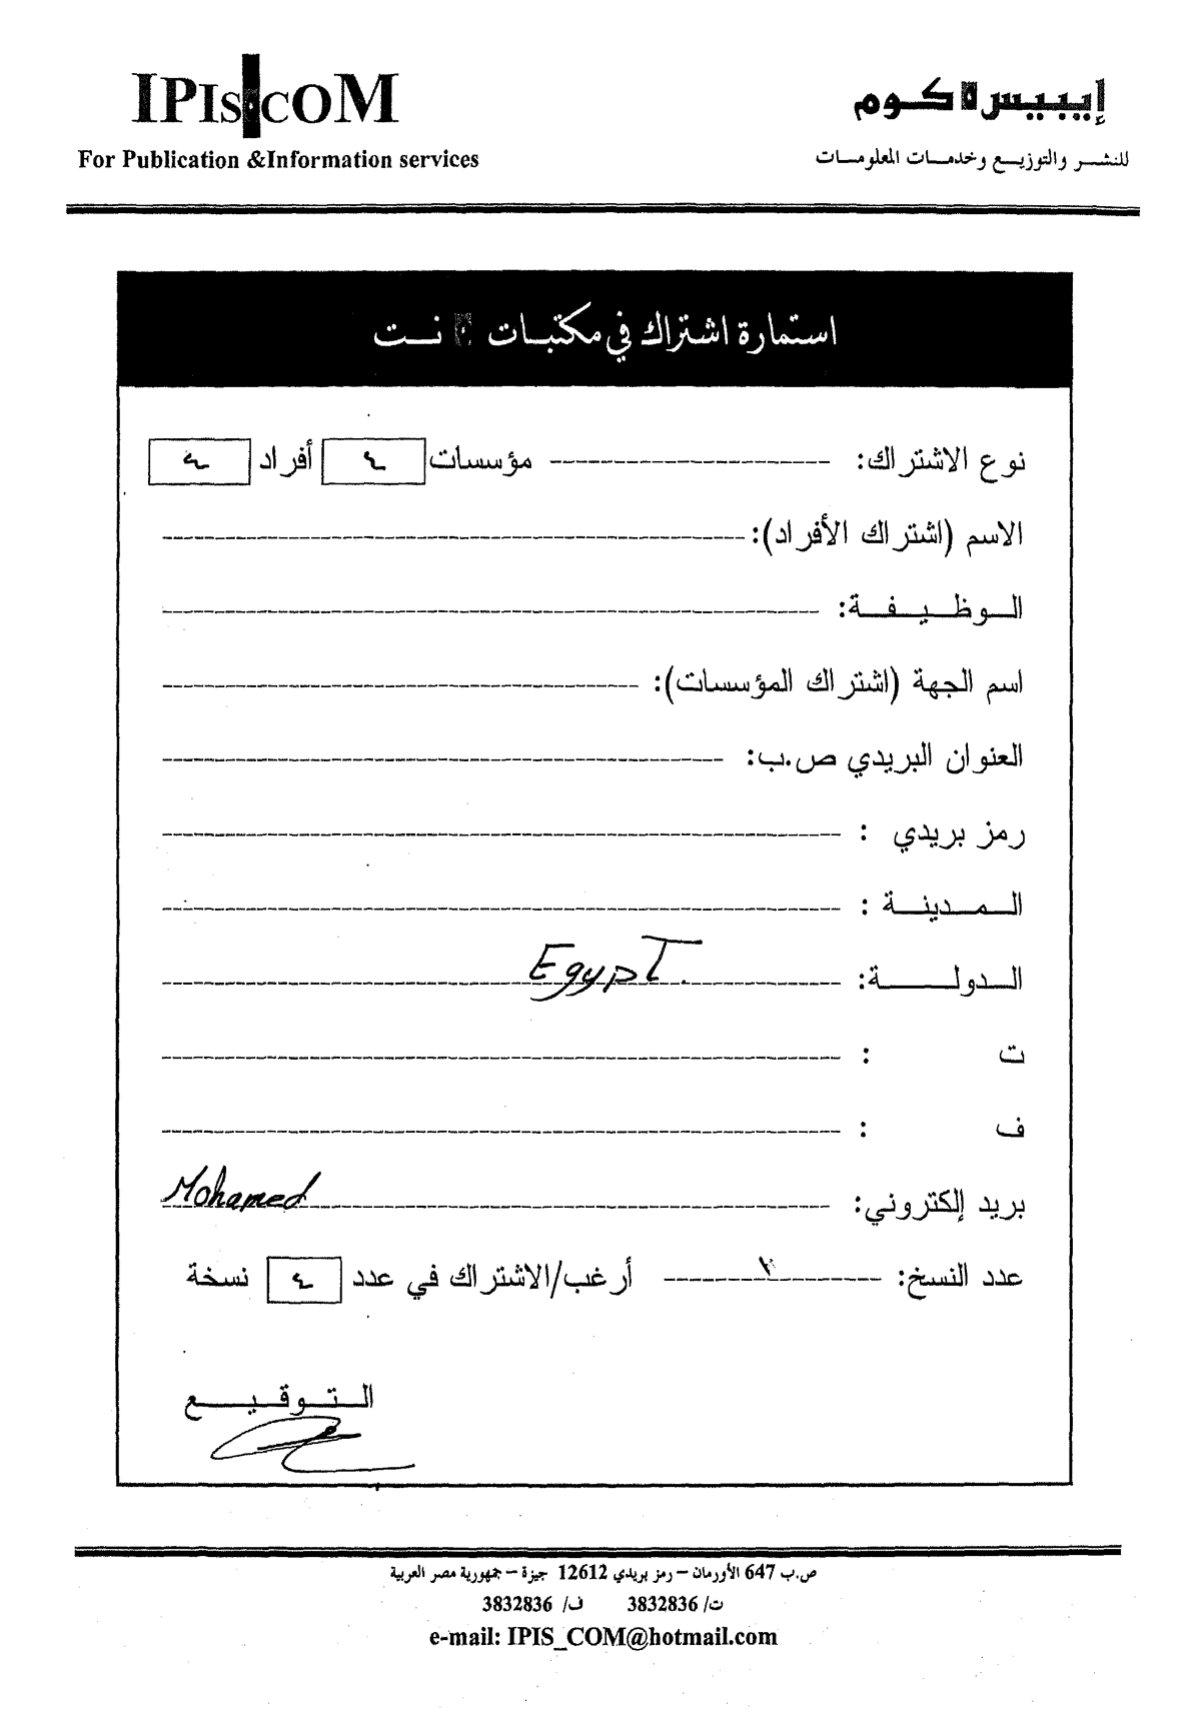 IPIS.COM
إيبيس كوم
For Publication &Information services
للنشر والتوزيع وخدمات المعلومات
استمارة اشتراك في مكتبات نت
نوع الاشتراك: مؤسسات ٤ أفراد
الاسم (اشتراك الأفراد):
الوظيفة:
اسم الجهة (اشتراك المؤسسات):
العنوان البريدي ص.ب:
رمز بريدي :
المدينة :
الدولة: Egypt.
ت :
ف :
بريد إلكتروني: Mohamed
عدد النسخ: أرغب/الاشتراك في عدد ٤ نسخة
التوقيع
ص.ب 647 الأورمان – رمز بريدي 12612 جيزة – جمهورية مصر العربية
ت/ 3832836 ف/ 3832836
e-mail: IPIS_COM@hotmail.com